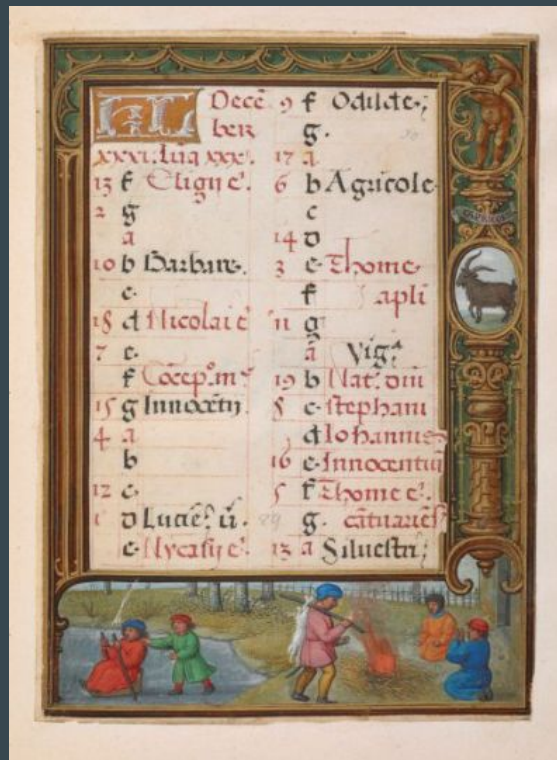 KL Decē
ber
xxxi. lūa xxx.
13 f Eligii e.
2 g
a
10 b Barbare.
c.
18 d Nicolai e
7 e.
f Cōcep. m
15 g Innocētii
4 a
b
12 c.
1 d Lucie. v.
e. Nycasii e.
9 f Odilde.
g.
17 a
6 b Agricole.
c
14 d
3 e. Thome
f apli
11 g
a Vig.
19 b Nat. dm̄i
8 c. stephani
d Iohannis
16 e. Innocentiū
5 f Thome e.
g. cātuarieš
13 a Siluestri